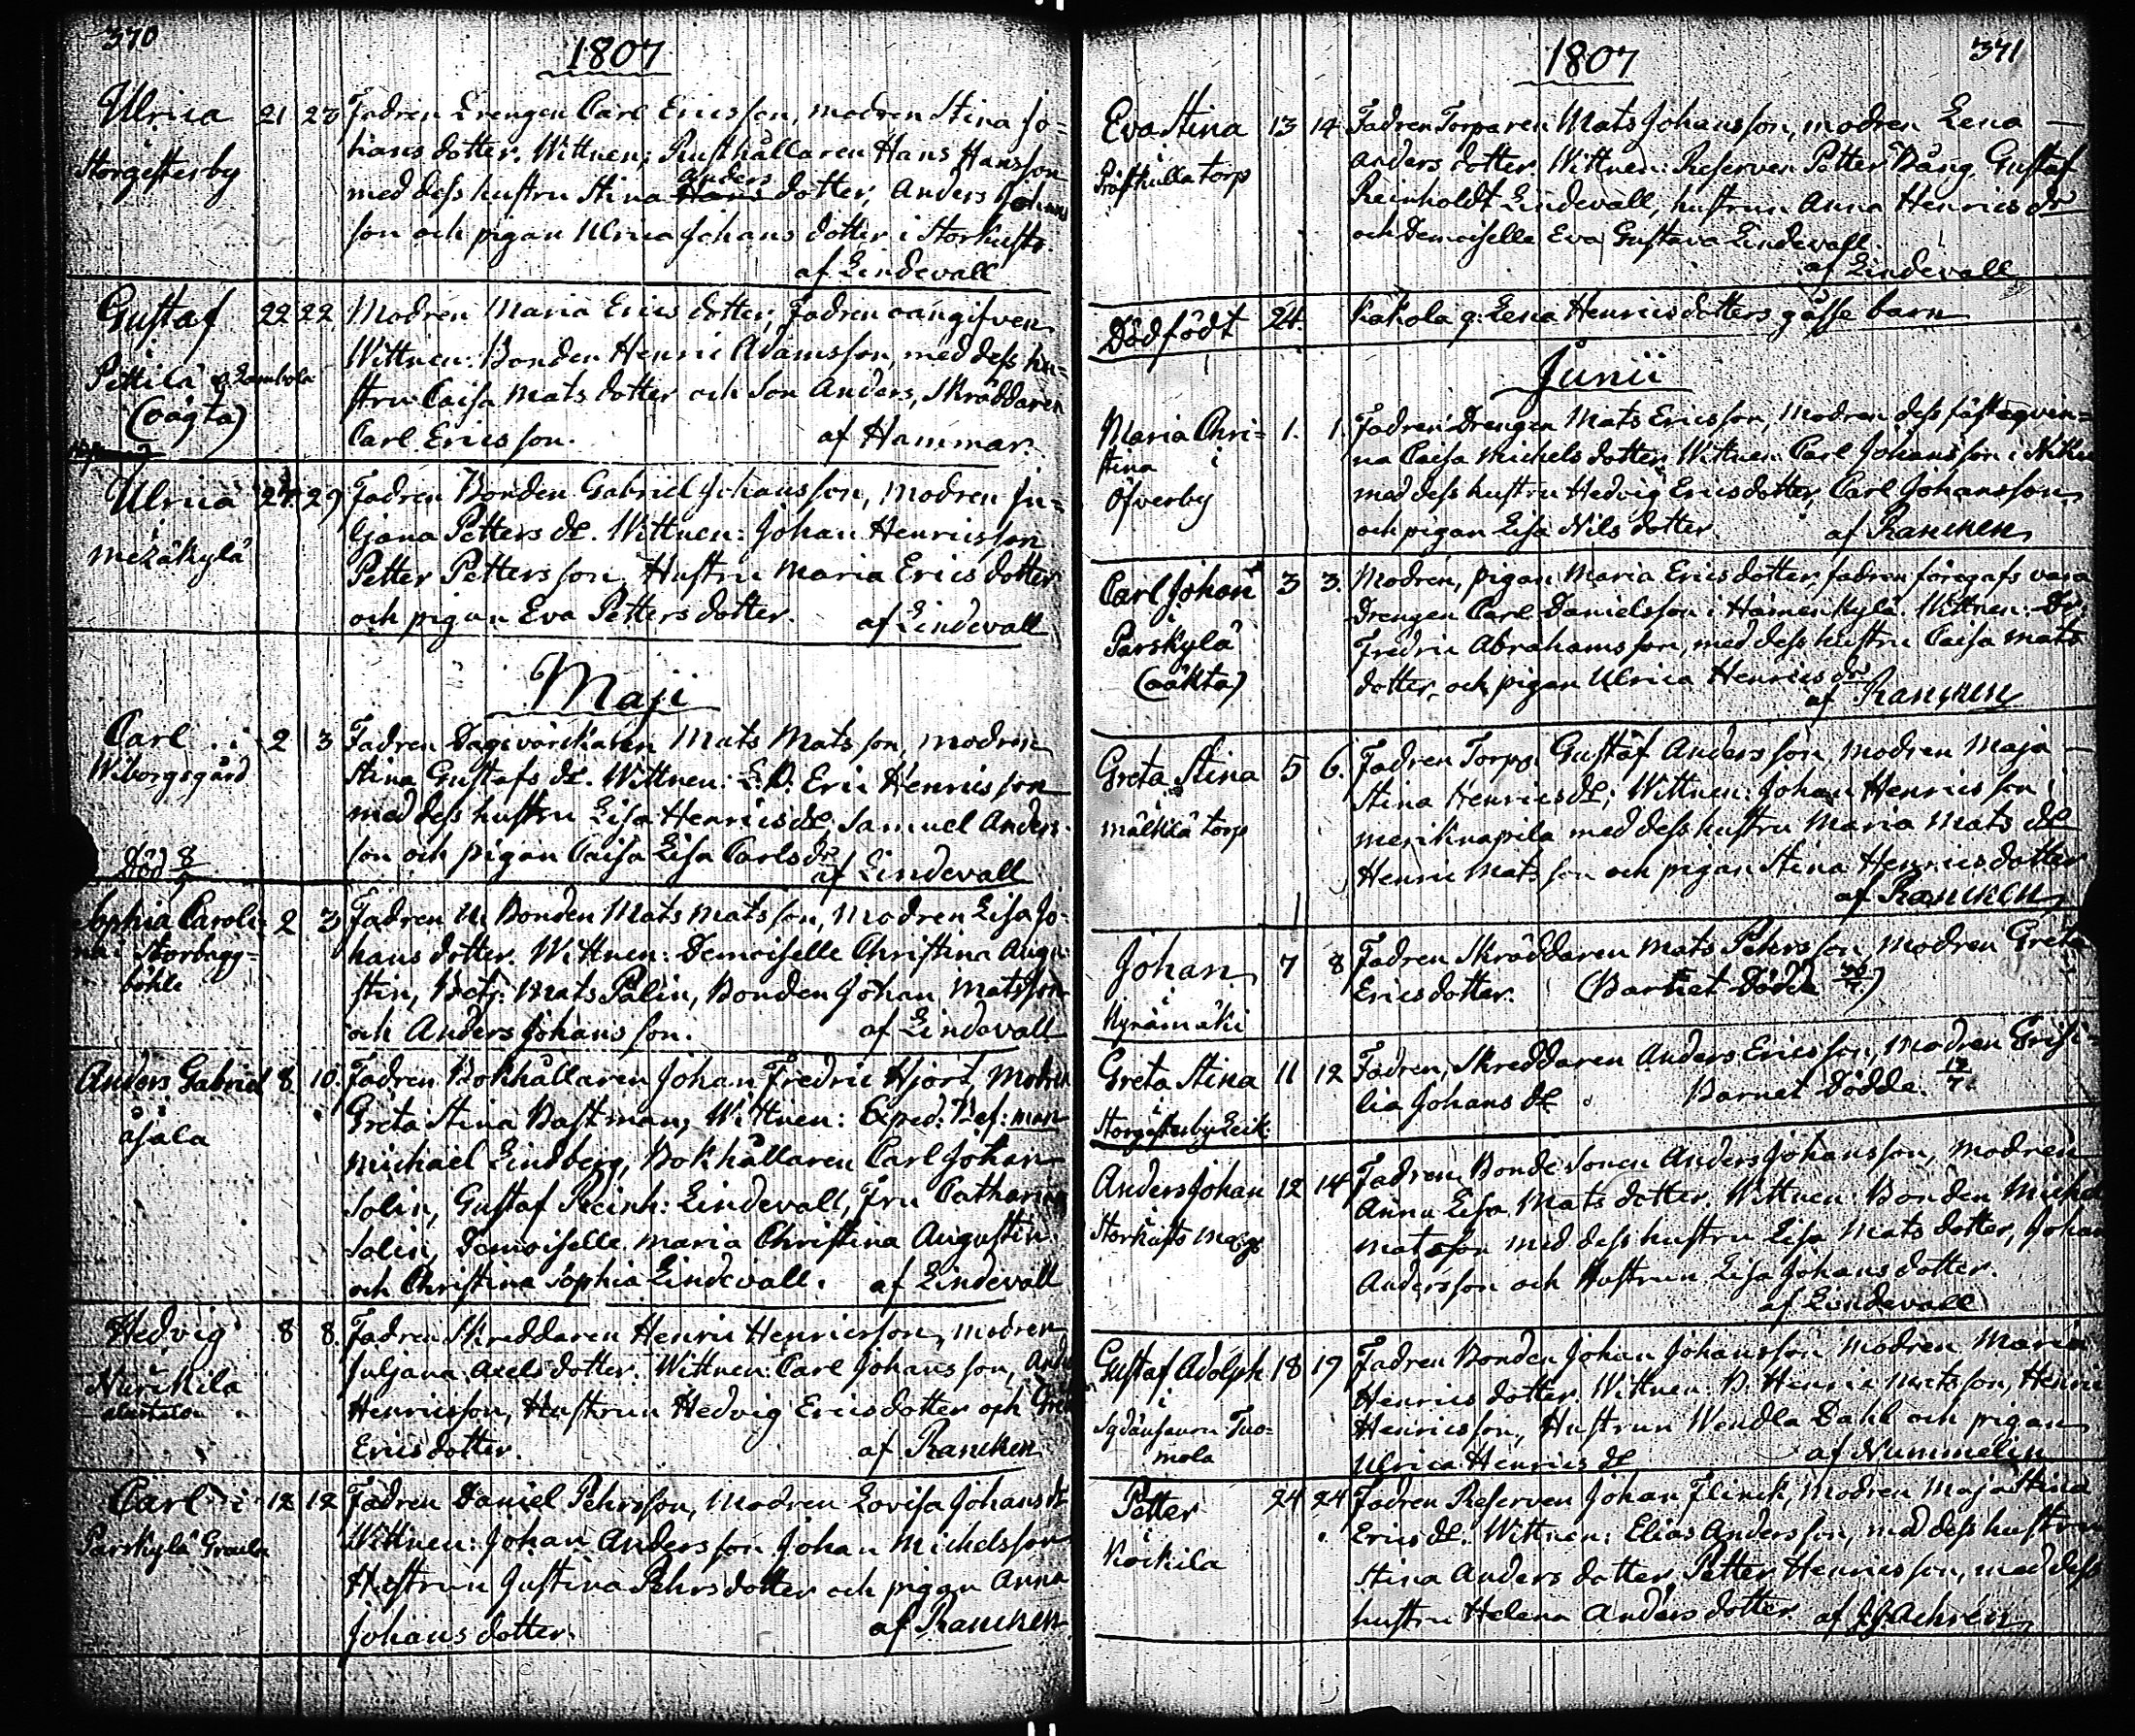 370
1807
Ulrica 21 23 Fadren Drengen Carl Ericsson, modren Stina Jo=
i hans dotter. Wittnen: Rusthållaren Hans Hansson
Storgästerby med dess hustru Stina Hans Anders dotter, Anders Johans
son och pigan Ulrica Johans dotter i Storkusto.
af Lindevall
Gustaf 22 22 Modren Maria Erics dotter, Fadren oangifven
i Wittnen: Bonden Henric Adamsson, med dess hu=
Pettilä
(oägta) stru Caisa Mats dotter och Son Anders, Skräddaren
Carl Ericsson. af Hammar.
Ulrica 27. 29 Fadren Bonden Gabriel Johansson, modren Ju=
i ljana Petters dr. Wittnen: Johan Henricsson
Mezäkylä Petter Pettersson, Hustru Maria Erics dotter
och pigan Eva Petters dotter. af Lindevall
Maji
Carl i 2 3 Fadren Dagsvärckaren Mats Matsson, modren
Wiborgsgård Stina Gustafs dr. Wittnen: Eric Henricsson
med dess hustru Lisa Henrics dr, Samuel Anders
Död 8/7 son och pigan Caisa Lisa Carls dr
af Lindevall
Sophia Caroli= 2 3 Fadren U. Bonden Mats Matsson, modren Lisa Jo=
na i Storbagg= hans dotter. Wittnen: Demoiselle Christina Augu=
böhle stin, Betj: Mats Palin, Bonden Johan Matsson
och Anders Johansson. af Lindevall
Anders Gabriel 8 10. Fadren Bokhållaren Johan Fredric Hjort, Modren
i Greta Stina Bastman, Wittnen: Exped: Bef: man
Asala Michaël Lindberg, Bokhållaren Carl Johan
Solin, Gustaf Reinh: Lindevall, Fru Catharina
Solin, Demoiselle Maria Christina Augustin
och Christina Sophia Lindevall. af Lindevall
Hedvig 8 8. Fadren Skreddaren Henric Henricsson, modren
i Juljana Axels dotter. Wittnen: Carl Johansson,
Nurikila Henricsson, Hustrun Hedvig Erics dotter och
Erics dotter. af Rancken
Carl i 12 12 Fadren Daniel Pehrsson, Modren Lovisa Johans dr
Parkylä Wittnen: Johan Andersson Johan Michelsson
Hustrun Justina Pehrsdotter och pigan Anna
Johans dotter. af Rancken
1807
371
Eva Stina 13 14 Fadren Torparen Mats Johansson, modren Lena
i Anders dotter. Wittnen: Reserven Petter Bång, Gustaf
torp Reinholdt Lindevall, hustrun Anna Henrics dr
och Demoiselle Eva Gustava Lindevall.
af Lindevall
Dödfödt 24. Kakola g: Lena Henricsdotters gåsse barn
Junii
Maria Chri= 1. 1. Fadren Drengen Mats Ericsson, Modren dess fästeqvin=
stina i na Caisa Michels dotter, Wittnen Carl Johansson i
Öfverby med dess hustru Hedvig Ericsdotter, Carl Johansson
och pigan Lisa Nils dotter. af Rancken
Carl Johan 3 3. Modren, pigan Maria Erics dotter, fadren föregafs vara
i Drengen Carl Danielsson i Hämenkylä. Wittnen: Dr:
Parskylä Fredric Abrahamsson, med dess hustru Caisa Mats
(oäkta) dotter, och pigan Ulrica Henrics dr
af Rancken
Greta Stina 5 6. Fadren Torp. Gustaf Andersson, modren Maja
i Stina Henrics dr; Wittnen: Johan Henricsson i
Mälkilä torp med dess hustru Maria Mats dr
Henric Matsson och pigan Stina Henrics dotter
af Rancken
Johan 7 8 Fadren Skräddaren Mats Pehrsson, Modren Greta
i Ericsdotter. (Barnet Dödde)
Kyrämäki
Greta Stina 11 12 Fadren, Skreddaren Anders Ericsson, Modren Grisi=
i lia Johans dr Barnet Dödde. 17/7.
Storgästerby
Anders Johan 12 14 Fadren Bonde Sonen Anders Johansson, modren
i Anna Lisa Mats dotter, Wittnen: Bonden Michel
Storkusto Matsson med dess hustru Lisa Mats dotter, Johan
Andersson och Hustrun Lisa Johans dotter.
af Lindevall
Gustaf Adolph 18 19 Fadren Bonden Johan Johansson modren Maria
i Henrics dotter. Wittnen B. Henric Matsson, Henric
Tuo= Henricsson, Hustrun Wendla Dahl och pigan
mola Ulrica Henrics dr af Nummelin
Petter 24 24 Fadren Reserven Johan Flinck, Modren Maja Stina
i Erics dr. Wittnen: Elias Andersson, med dess hustru
Kockila Stina Anders dotter, Petter Henricsson, med dess
hustru Helena Anders dotter af J. J. Achrén